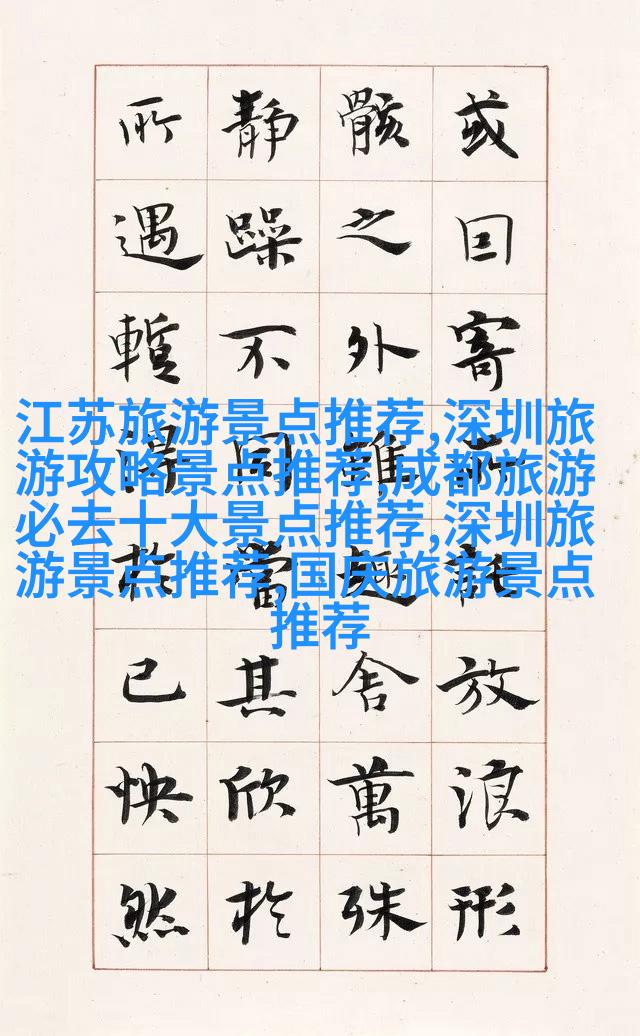 或囙寄所託放浪形
骸之外雖趣舍萬殊
静躁不同當其欣於
所遇暫得於已怏然
江苏旅游景点推荐,深圳旅
游攻略景点推荐,成都旅游
必去十大景点推荐,深圳旅
游景点推荐,国庆旅游景点
推荐